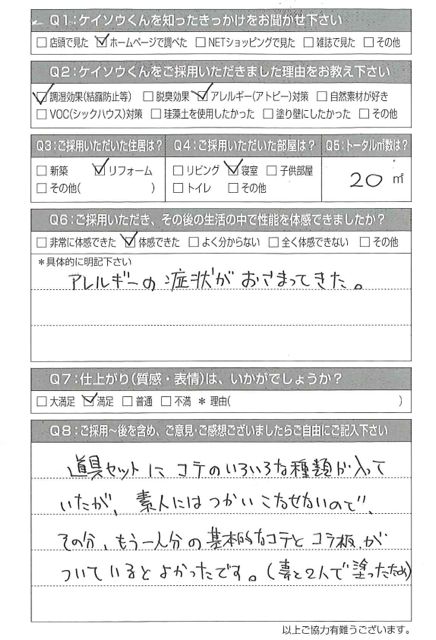 Q1:ケイソウくんを知ったきっかけをお聞かせ下さい
□店頭で見た ☑ホームページで調べた □NETショッピングで見た □雑誌で見た □その他
Q2:ケイソウくんをご採用いただきました理由をお教え下さい
☑調湿効果(結露防止等) □脱臭効果 ☑アレルギー(アトピー)対策 □自然素材が好き
□VOC(シックハウス)対策 □珪藻土を使用したかった □塗り壁にしたかった □その他
Q3:ご採用いただいた住居は? Q4:ご採用いただいた部屋は? Q5:トータル㎡数は?
□新築 ☑リフォーム □リビング ☑寝室 □子供部屋 20 ㎡
□その他( ) □トイレ □その他
Q6:ご採用いただき、その後の生活の中で性能を体感できましたか?
□非常に体感できた ☑体感できた □よく分からない □全く体感できない □その他
*具体的に明記下さい
アレルギーの症状がおさまってきた。
Q7:仕上がり(質感・表情)は、いかがでしょうか?
□大満足 ☑満足 □普通 □不満 *理由( )
Q8:ご採用~後を含め、ご意見・ご感想ございましたらご自由にご記入下さい
道具セットにコテのいろいろな種類が入って
いたが、素人にはつかいこなせないので、
その分、もう一人分の基本的なコテとコテ板が
ついているとよかったです。(妻と2人で塗ったため)
以上ご協力有難うございます。